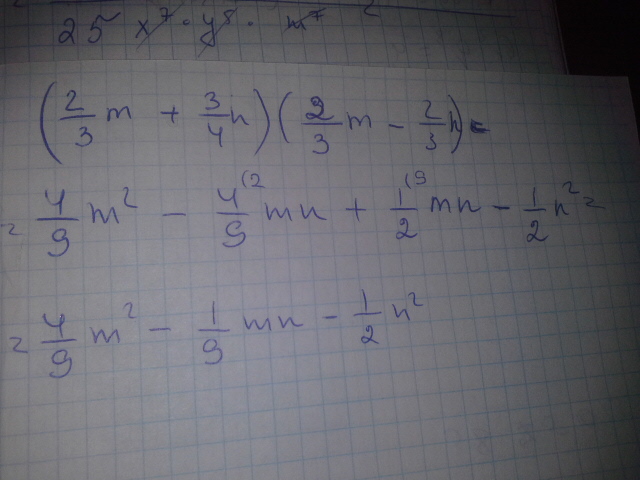 25 x⁷ · y⁸ · m⁷ 2
(2/3 m + 3/4 n)(2/3 m - 2/3 n) =
= 4/9 m² - 4/9 (2 mn + 1/2 (9 mn - 1/2 n² =
= 4/9 m² - 1/9 mn - 1/2 n²